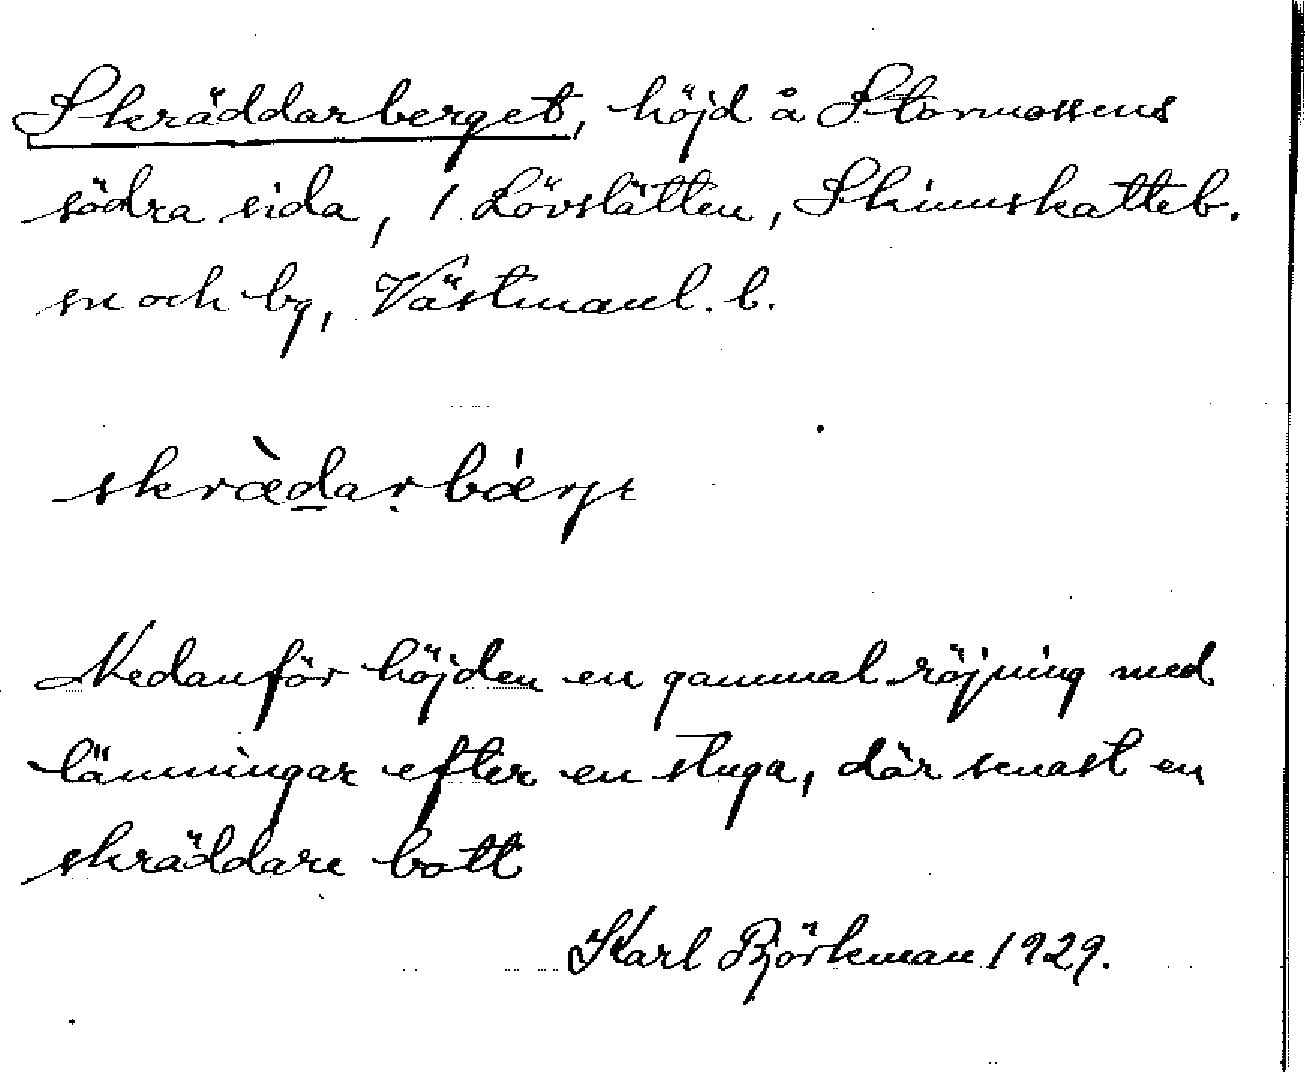 Skräddarberget, höjd å Stormossens
södra sida, / Lövslätten, Skinnskatteb.
sn och by, Västmanl. l.
skræ̀dar bærje
Nedanför höjden en gammal röjning med
lämningar efter en stuga, där senast en
skräddare bott
Karl Björkman 1929.